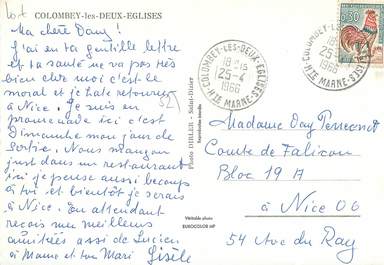 COLOMBEY-les-DEUX-EGLISES
Ma chère Dany !
J'ai eu ta gentille lettre
et ta santé ne va pas très
bien chez moi c'est le
moral et je hate retourner
à Nice. Je suis en
promenade ici c'est
Dimanche mon jour de
sortie. Nous mangeons
just dans un restaurant
ici je pense aussi beaucoup
à toi et bientôt je serais
à Nice. En attendant
reçois mes meilleurs
amitiées assi de Lucien
à Mame et ton Mari Gisèle
Photo DIRLER - Saint-Dizier
Reproduction interdite
Véritable photo
EUROCOLOR MF
COLOMBEY-LES-DEUX-EGLISES
18 H 15
25-4
1966
HTE MARNE
0,30
COLOMBEY-LES-DEUX-EGLISES
25-4
1966
HTE MARNE
Madame Dany
Comte de Falicon
Bloc 19 A
à Nice 06
54 Avenue du Ray